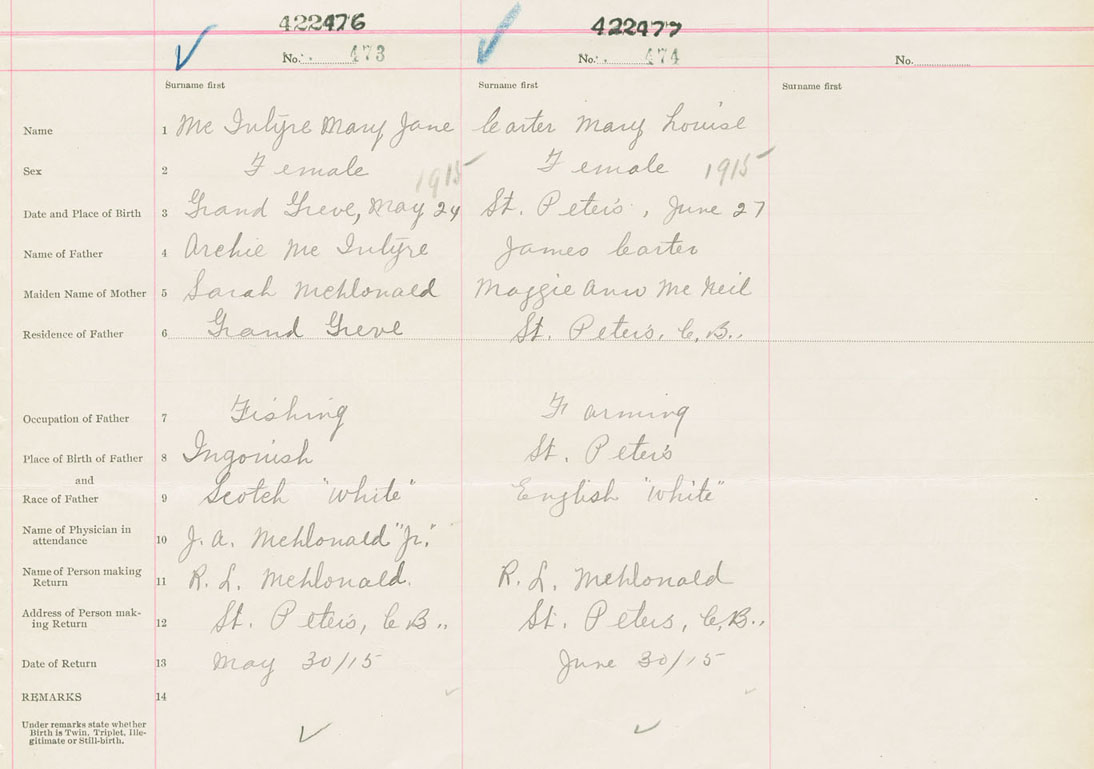 422476 422477
No. 473 No. 474 No.
Surname first Surname first Surname first
Name 1 Mc Intyre Mary Jane Carter Mary Louise
Sex 2 Female Female
1915 1915
Date and Place of Birth 3 Grand Greve, May 24 St. Peter's, June 27
Name of Father 4 Archie Mc Intyre James Carter
Maiden Name of Mother 5 Sarah McDonald Maggie Ann Mc Neil
Residence of Father 6 Grand Greve St. Peter's, C.B..
Occupation of Father 7 Fishing Farming
Place of Birth of Father 8 Ingonish St. Peter's
and
Race of Father 9 Scotch "White" English "White"
Name of Physician in
attendance 10 J. A. McDonald "Jr."
Name of Person making
Return 11 R. L. McDonald. R. L. McDonald
Address of Person mak-
ing Return 12 St. Peter's, C.B.. St. Peter's, C.B..
Date of Return 13 May 30/15 June 30/15
REMARKS 14
Under remarks state whether
Birth is Twin, Triplet, Ille-
gitimate or Still-birth.